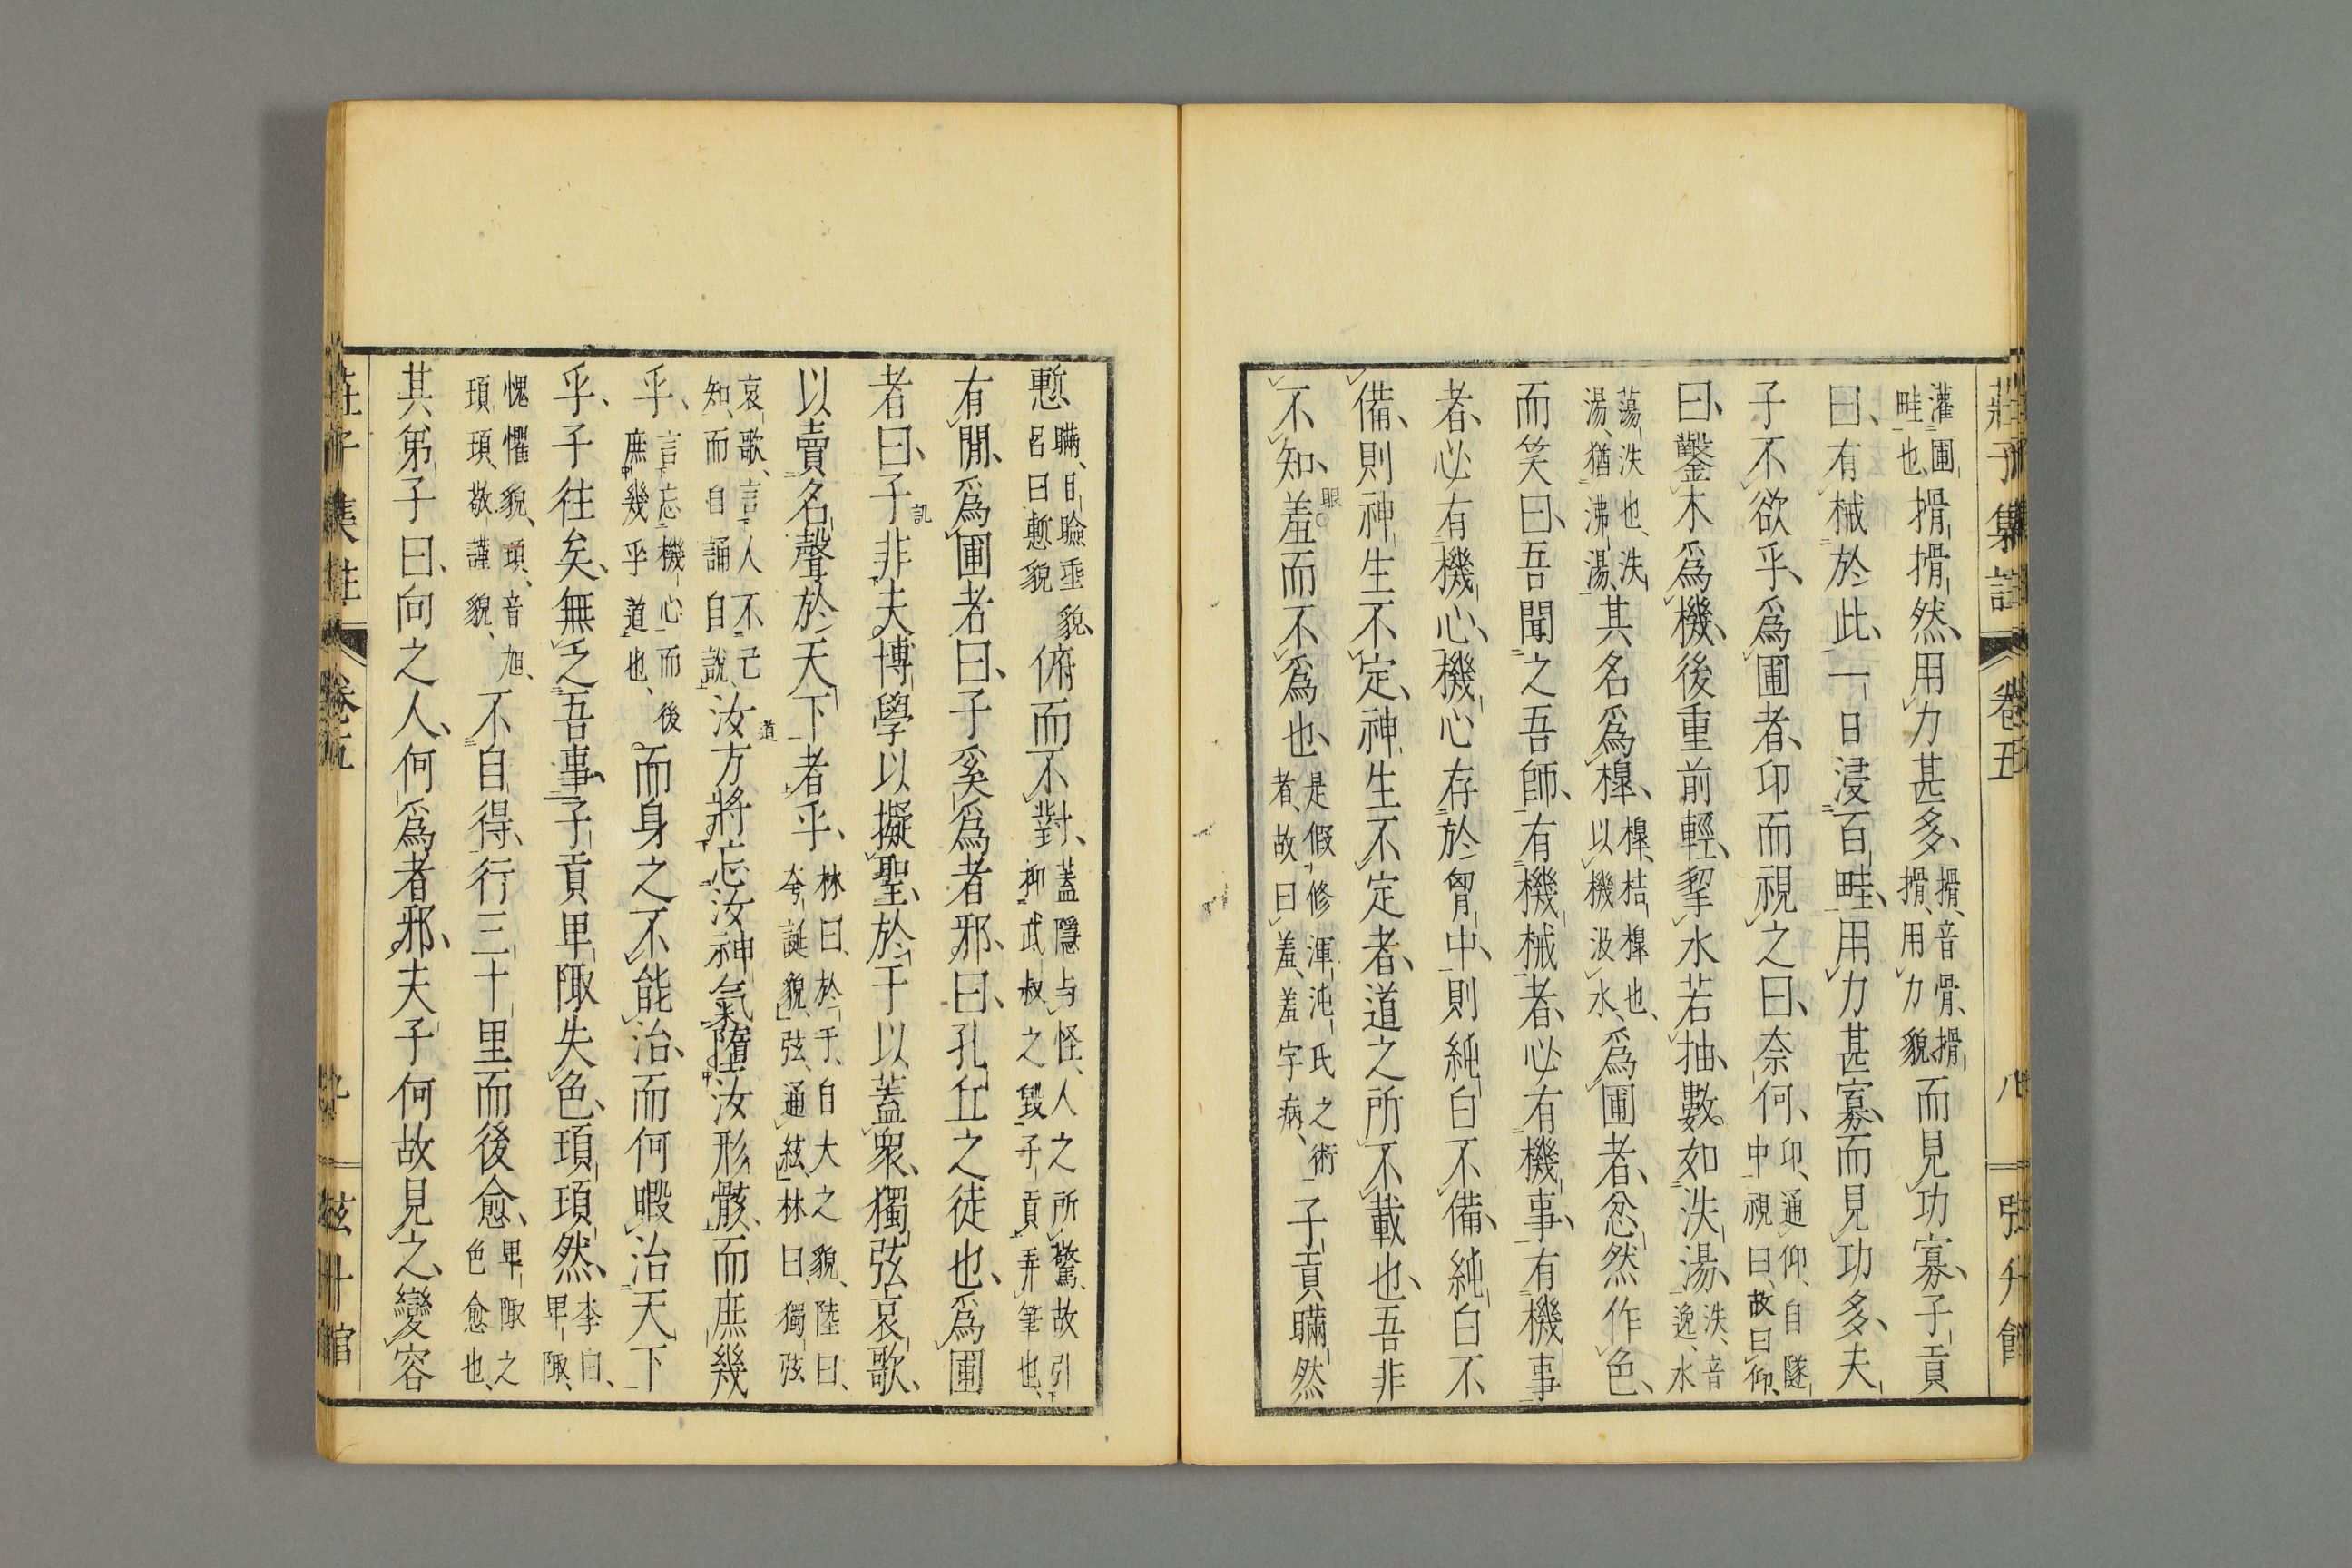 莊子集註 卷五 八 弦升館
灌圃畦也、搰搰然、用力甚多、搰、音骨、搰搰、用力貌而見功寡、子貢
曰、有械於此、一日浸百畦、用力甚寡、而見功多、夫
子不欲乎、爲圃者、卬而視之曰、奈何、卬、通仰、自隧中視曰、故曰仰、
曰、鑿木爲機、後重前輕、挈水若抽、數如泆湯、泆、音逸、水
蕩泆也、泆湯、猶沸湯、其名爲槹、槹、桔槹也、以機汲水、爲圃者、忿然作色、
而笑曰、吾聞之吾師、有機械者、必有機事、有機事
者、必有機心、機心存於胷中、則純白不備、純白不
備、則神生不定、神生不定者、道之所不載也、吾非
不知、羞而不爲也、是假修渾沌氏之術者、故曰羞、羞字病、子貢瞞然
眼
慙、瞞、目瞼垂貌、呂曰、慙貌俯而不對、蓋隱与怪、人之所驚、故引抑武叔之毀、子貢弄筆也、
有閒、爲圃者曰、子奚爲者邪、曰、孔丘之徒也、爲圃
者曰、子非夫博學以擬聖、於于以蓋衆、獨弦哀歌、
訕
以賣名聲於天下者乎、林曰、於于、自大之貌、陸曰、夸誕貌、弦、通絃、林曰、獨弦
哀歌、言人不己知、而自誦自說、汝方將忘汝神氣、墮汝形骸、而庶幾
道
乎、言忘機心而後庶幾乎道也、而身之不能治、而何暇治天下
乎、子往矣、無乏吾事、子貢卑陬失色、頊頊然、李曰、卑陬、
愧懼貌、頊、音旭、頊頊、敬謹貌、不自得、行三十里而後愈、卑陬之色愈也、
其弟子曰、向之人、何爲者邪、夫子何故見之、變容
莊子集註 卷五 九 弦升館